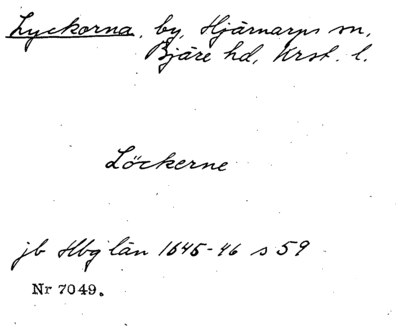 Lyckorna, by, Hjärnarps sn,
Bjäre hd, Krst. l.
Löckerne
jb Hbg län 1645-46 s 59
Nr 7049.